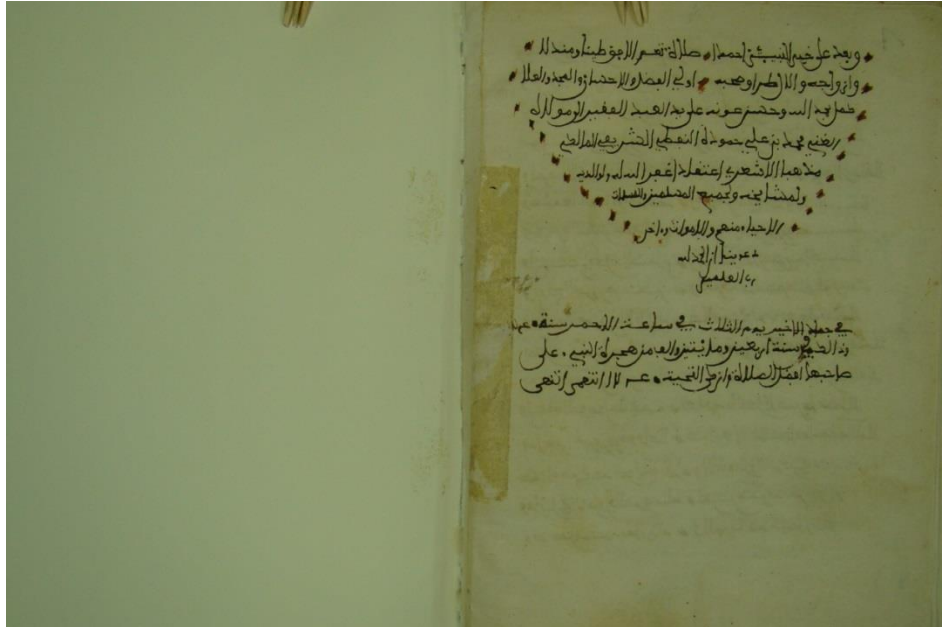 وبعد على خير النبيين احمدا صلاة تعم الاجو طيبا ومندلا
وازواجه والال طرا وصحبه اولي الفضل والاحسان والمجد والعلا
كمل بحمد الله وحسن عونه على يد العبد الفقير الى مولاه
الغني محمد بن علي حمودة النفطي الشريف المالكي
مذهبا الاشعري اعتقادا غفر الله له ولوالديه
ولمشايخه وجميع المسلمين والمسلمات
الاحياء منهم والاموات وءاخر
دعوينا ان الحمد لله
رب العلمين
في جماد الاخير يوم الثالث في ساعت الاحمر سنة
سنة اربعين وماىتين والف من هجرة النبي على
صاحبها افضل الصلاة وازكى التحية انتهى انتهى